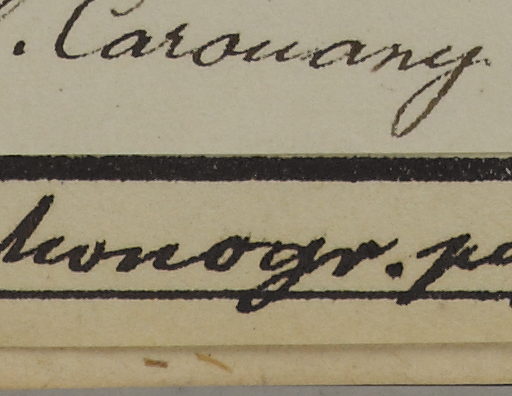 . Carouany
monogr. pa